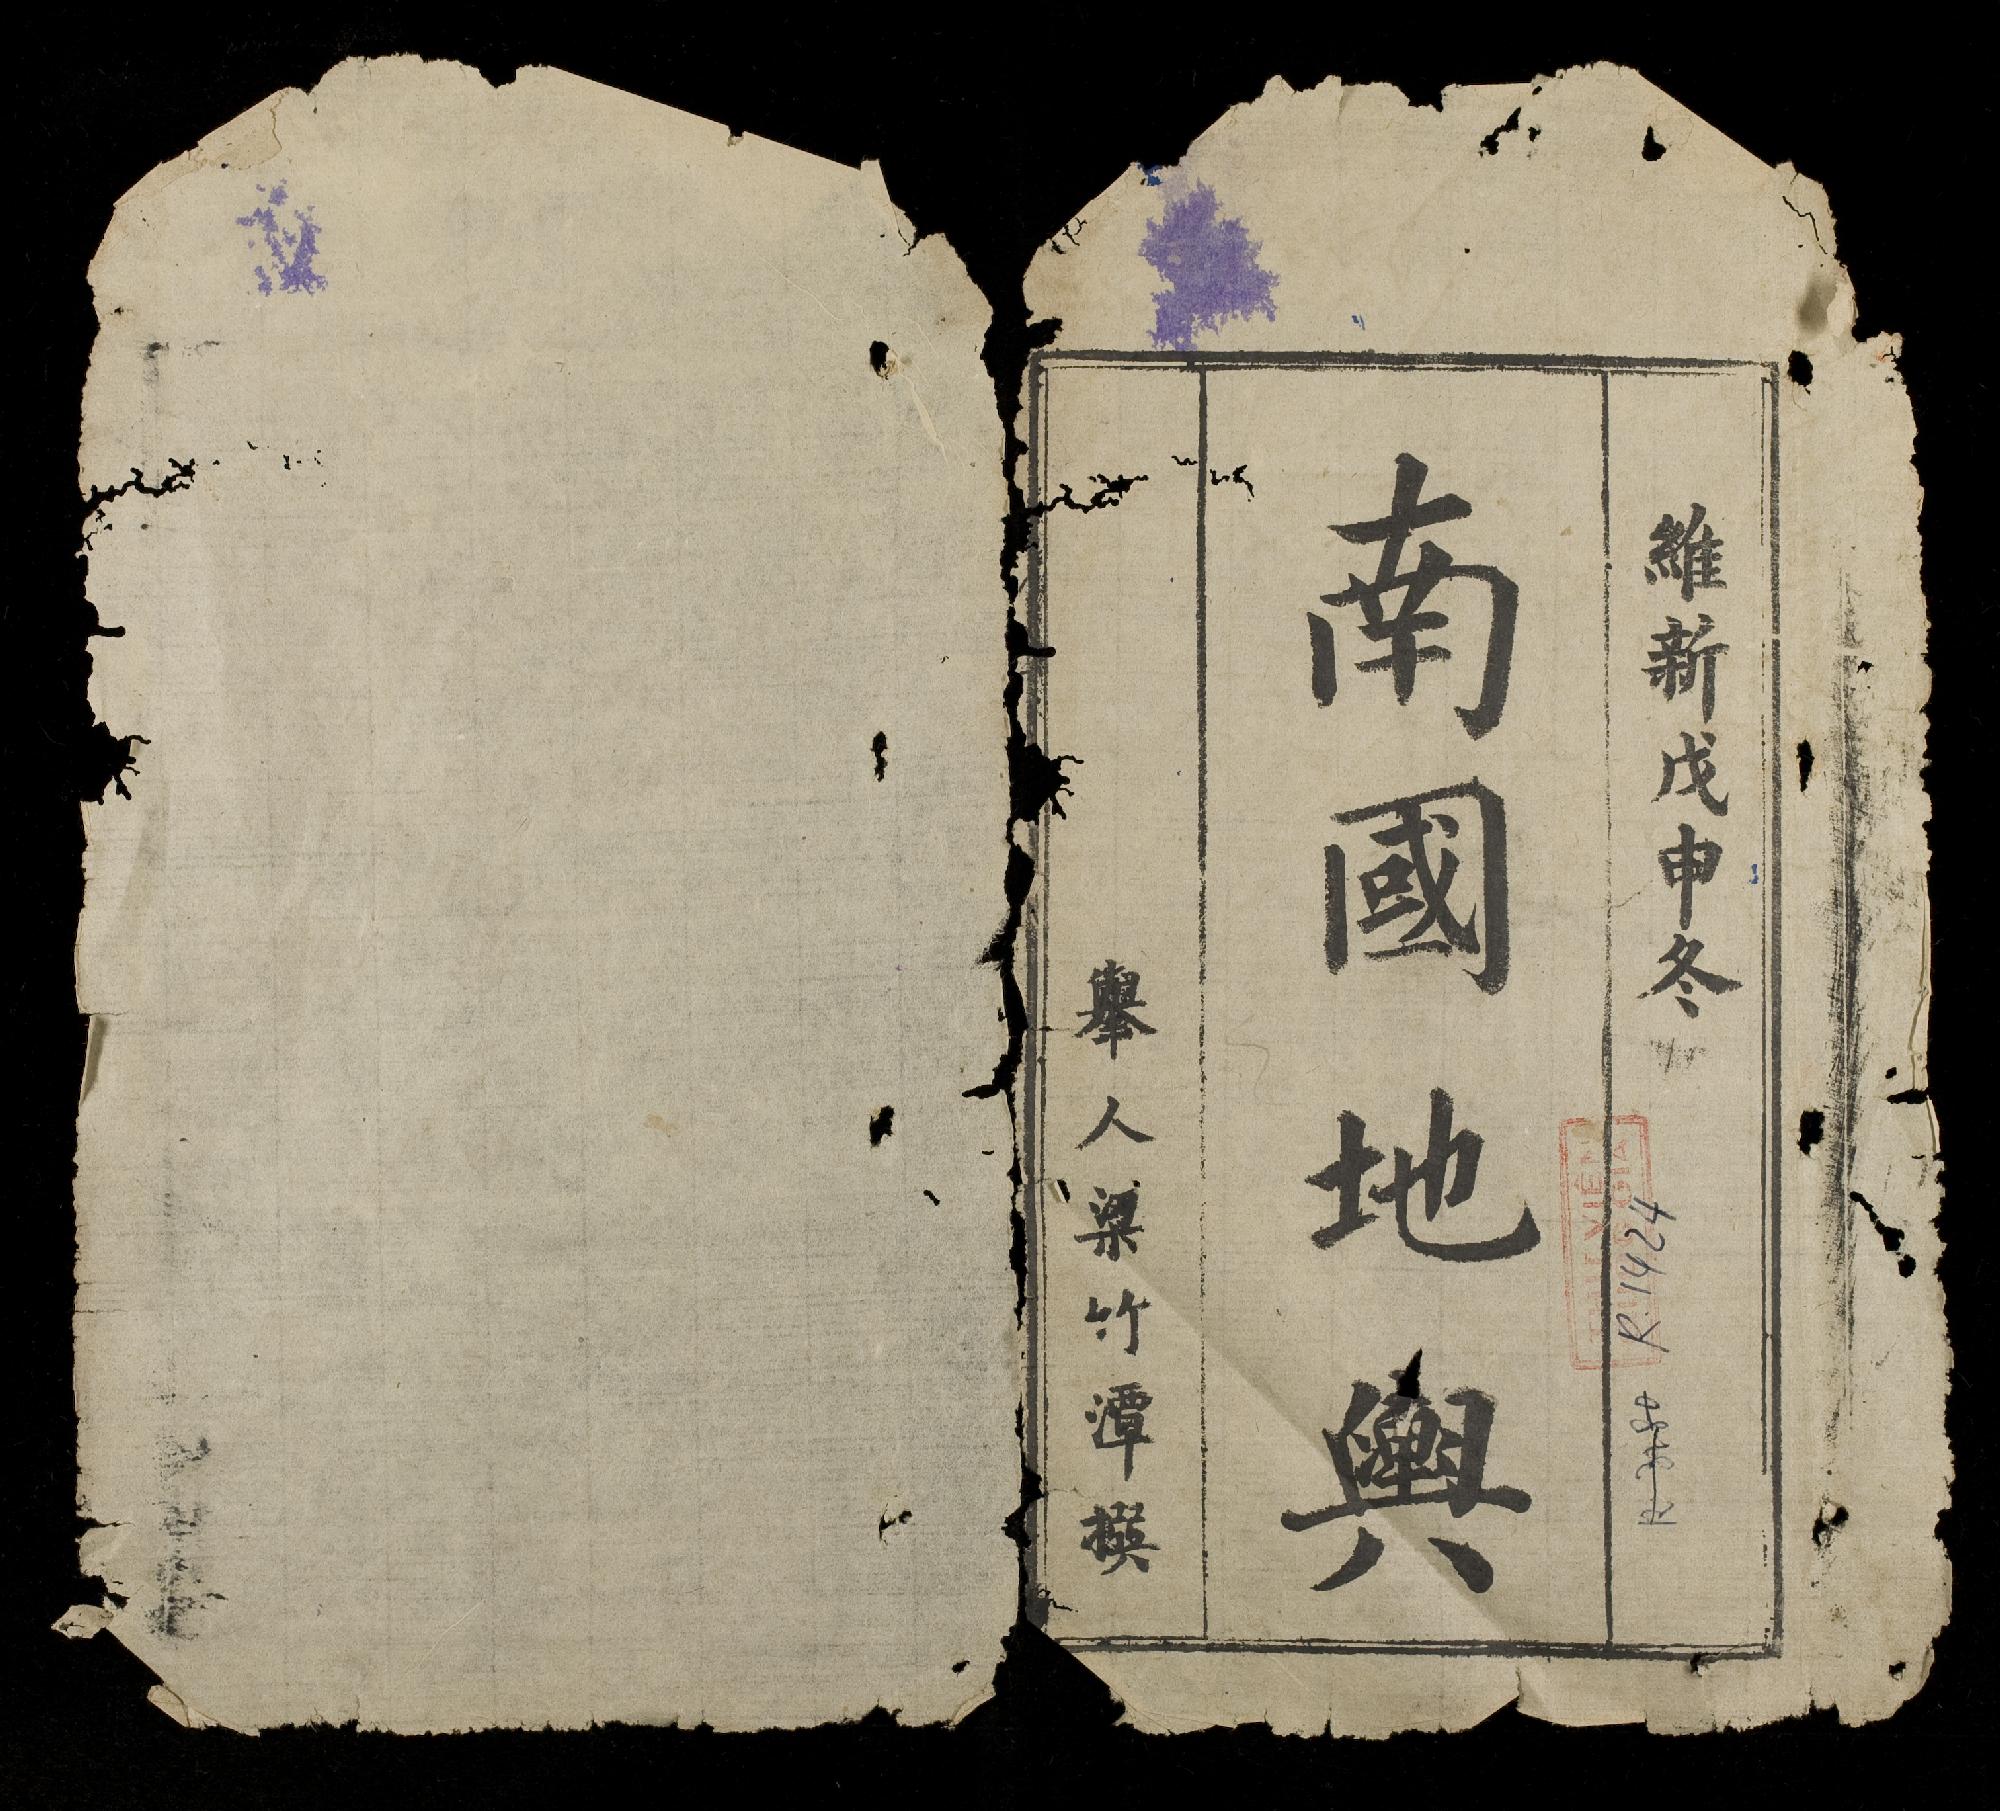 維新戊申冬
南國地輿
舉人梁竹潭撰
THƯ VIỆN
QUỐC GIA
R.1424
R 3180